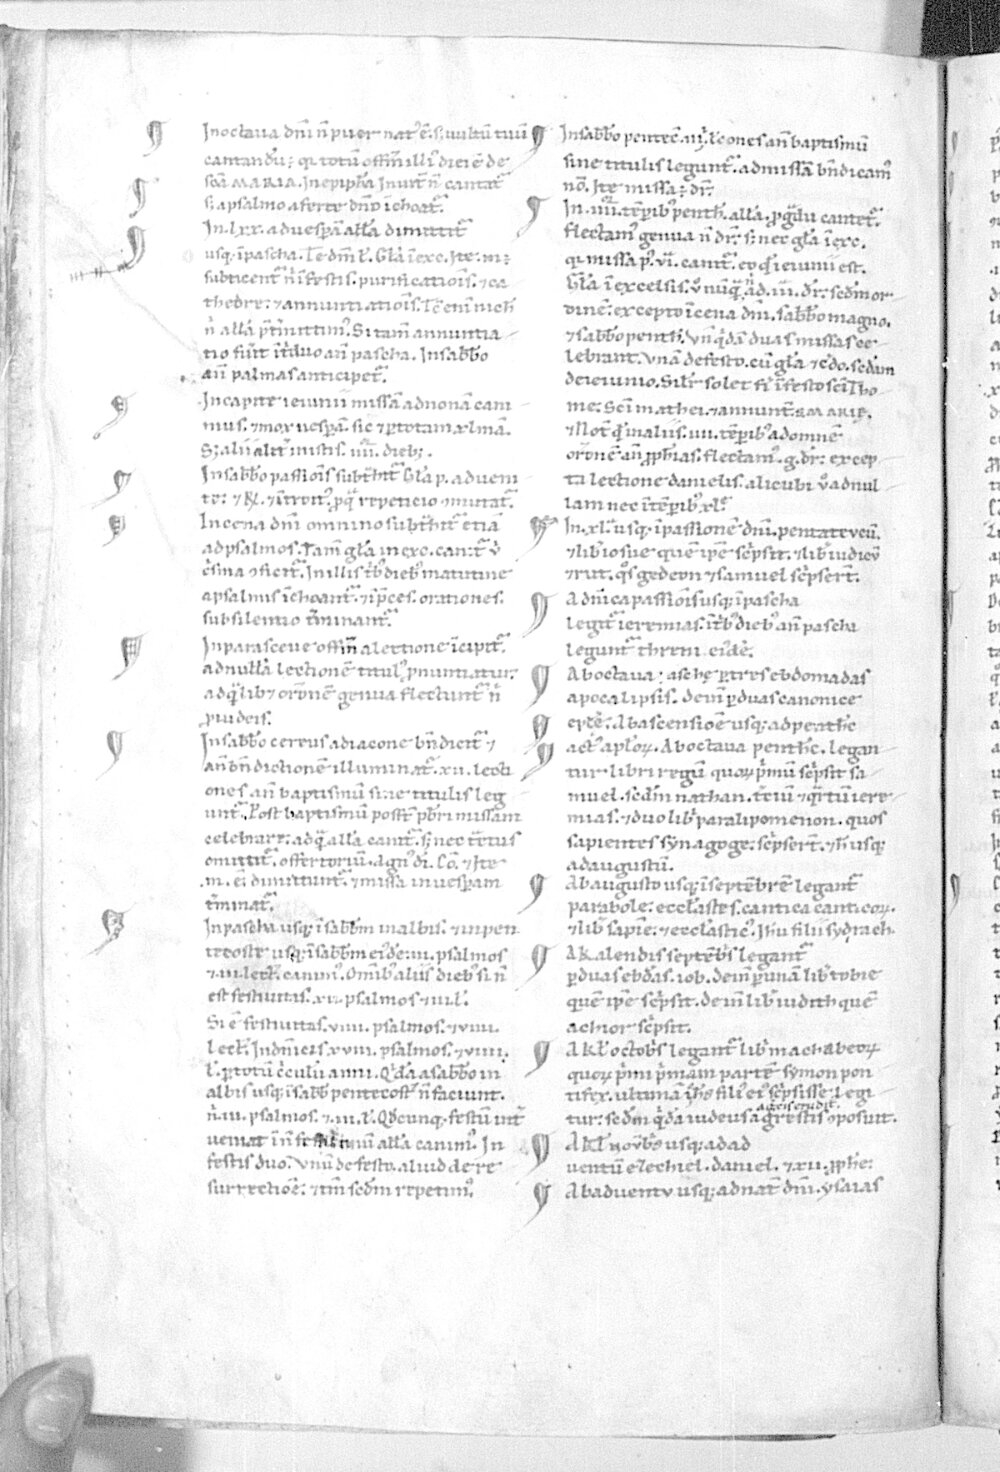 In octaua dn̄i n̄ puer nat᷒ ē. s; uultū tuū
cantandū; q᷒ totū offm̄ illi᷒ diei ē de
sc̄a MARIA. In epiph̄a Inuit̄ n̄ cantat᷑
s; a psalmo aferte dn̄o īchoat᷑.
In lxx. ad uesp̄ā all̄a dimittit᷑
usq; ī pascha. Te dm̄ l᷑. Gl̄a ī exc. Ite. m;
subticent᷑ n̄ ī festis. purificatiōis. ⁊ ca
thedre. ⁊ annuntiatiōis. Te enī nich
n̄ all̄a p̄t̄mittim᷒. Si tam̄ annuntia
tio fu͛it īt̄duo an̄ pascha. In sabb̄o
an̄ palmas anticipet᷑.
In capite ieiunii missā ad nonā cani
mus. ⁊ mox uesp̄ā. sic ⁊ p̄ totam xlmā.
S; alii alit̄ in istis. .IIII. dieb;.
In sabb̄o passiōis subt̄hit᷑ Gl̄a p. ad ueni
te. ⁊ R̷. ⁊ īt̄roit᷒. p̄q᷑ repeticio ī mutat᷑.
In cena dn̄i omnino subt̄hit᷑ etiā
ad psalmos. Tam̄ gl̄a in exc. can̄t᷑ ū
c̄sma ꝯficit᷑. In illis t̄b᷒ dieb᷒ matutine
a psalmis īchoant᷑. ⁊ p̄ces. orationes.
sub silentio t̄minant᷑.
In parasceue offm̄ a lectione īcipit᷑.
ad nullā lectionē titul᷒ ꝓnuntiatur.
ad q̄libꝫ orōnē genua flectunt᷑ n̄
ꝓ iudeis.
In sabb̄o cereus a diacone bn̄dicit᷑ ⁊
an̄ bn̄dictionē illuminat᷑. xii. lecti
ones an̄ baptismū sine titulis leg
unt᷑. Post baptismū postē p̄bri missam
celebrare: ad q̄ all̄a canit᷑. s; nec t̄ctus
omittit᷑. offertoriū. Agn᷒ di. Cō. ⁊ Ite
m. ē; dimittunt᷑. ⁊ missa in uesp̄am
t̄minat᷑.
In pascha usq; ī sabb̄m in albis. ⁊ in pen
tecoste usq; ī sabb̄m ei᷒dē. iii. psalmos
⁊ iii lect̄. canim᷒. Omīb᷒ aliis dieb᷒ si n̄
est festiuitas. xii. psalmos ⁊ iii l᷑.
Si ē festiuitas. viiii. psalmos. ⁊ viiii.
lect̄. In dn̄icis. xviii. psalmos. ⁊ viiii.
l᷑. p̄ totū c̄culū anni. Q᷒dā a sabb̄o in
albis usq; ī sabb̄ pentecost᷑ n̄ faciunt.
n̄ iii. psalmos. ⁊ iii. l᷑. Q̄ꝯcunq; festū int᷑
uemat in all̄a canim᷒. In
festis duo. Vnū de festo. aliud de re
surrectiōe. ⁊ tm̄ sc̄dm repetim᷒.
In sabb̄o pentec̄. iiii. lc̄ones an̄ baptismū
sine titulis legunt᷑. ad missā bn̄dicam᷒
nō. Ite missa; dr̄.
In .IIII. tēpib᷒ penth̄. all̄a. p̄ g̊du cantet᷑.
flectam᷒ genua n̄ dr̄. s; nec gl̄a ī exc.
q᷒ missa p᷒. vi. canit᷑. eo q̄ ieiunii est.
Gl̄a ī excelsis. ū nūq̄ n̄ ad. iii. dr̄. sc̄dm or
dinē. excepto ī cena dn̄i. sabb̄o magno.
⁊ sabb̄o penth̄. Vn̄ q᷒dā duas missas ce
lebrant. Vnā de festo. cū gl̄a ⁊ c̄do. sc̄dam
de ieiunio. Silīr solet fi ī festo sc̄i Tho
me. Sc̄i mathei. ⁊ annunt̄. s. MARIE.
⁊ Not̄ q̄ in aliis. iiii. tēpib᷒ ad omnē
orōnē an̄ ꝓph̄ias. flectam᷒. g. dr̄. excep
ta lectione danielis. alicubi ū ad nul
lam nec ī tēpib᷒ xl᷑.
In. xl᷑. usq; ī passionē dn̄i. pentateucū.
⁊ lib᷒ iosue quē ip̄e sc̄psit. ⁊ lib᷒ iudicū
⁊ rut. q᷒s gedeon ⁊ samuel sc̄psert.
A dn̄ica passiōis usq; ī pascha
legit᷑ ieremias. ī t̄b᷒ dieb᷒ an̄ pascha
legunt᷑ threni. ei᷒dē.
Ab octaua; asche p̄ tres ebdomadas
apocalipsis. dein̄ p̄ duas canonice
ep̄le. Ab ascensiōe usq; ad penth̄c
act᷒ ap̄loꝝ. Ab octaua penth̄c. legan
tur libri regū quoꝝ p̄mū sc̄psit sa
muel. sc̄dm nathan. t̄ciū ⁊ q̊rtū iere
mias. ⁊ duo lib᷒ paralipomenon. quos
sapientes synagoge. sc̄psert. ⁊ h̄ usq;
ad augustū.
Ab augusto usq; ī septēbrē legant᷑
parabole. eccl̄astes. cantica canticoꝝ.
⁊ lib᷒ sapiē. ⁊ eccl̄astic᷒. Ih̄u filii sydrach.
A Kalendis septēb᷒s legant᷑
p̄ duas ebd̄as. iob. dein̄ p̄ unā lib᷒ tobie
quē ip̄e sc̄psit. dein̄ lib᷒ iudith quē
achior sc̄psit.
A Kl̄ octob᷒s legant᷑ lib᷒ machabeoꝝ
quoꝝ p̄mi p̄mam partē symon pon
tifex. ultimā ioh̄s fili᷒ ei᷒ sc̄psisse legi
tur. sc̄dm q᷒dā iudeus agrestis ꝯposuit.
A Kl̄ nouēb᷒s usq; ad ad
uentū ezechiel. daniel. ⁊ xii. ꝓph̄e.
Ab aduentu usq; ad nat̄ dn̄i. ysaias